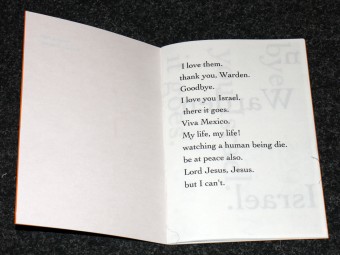 I love them.
thank you, Warden.
Goodbye.
I love you Israel.
there it goes.
Viva Mexico.
My life, my life!
watching a human being die.
be at peace also.
Lord Jesus, Jesus.
but I can't.
Israel.